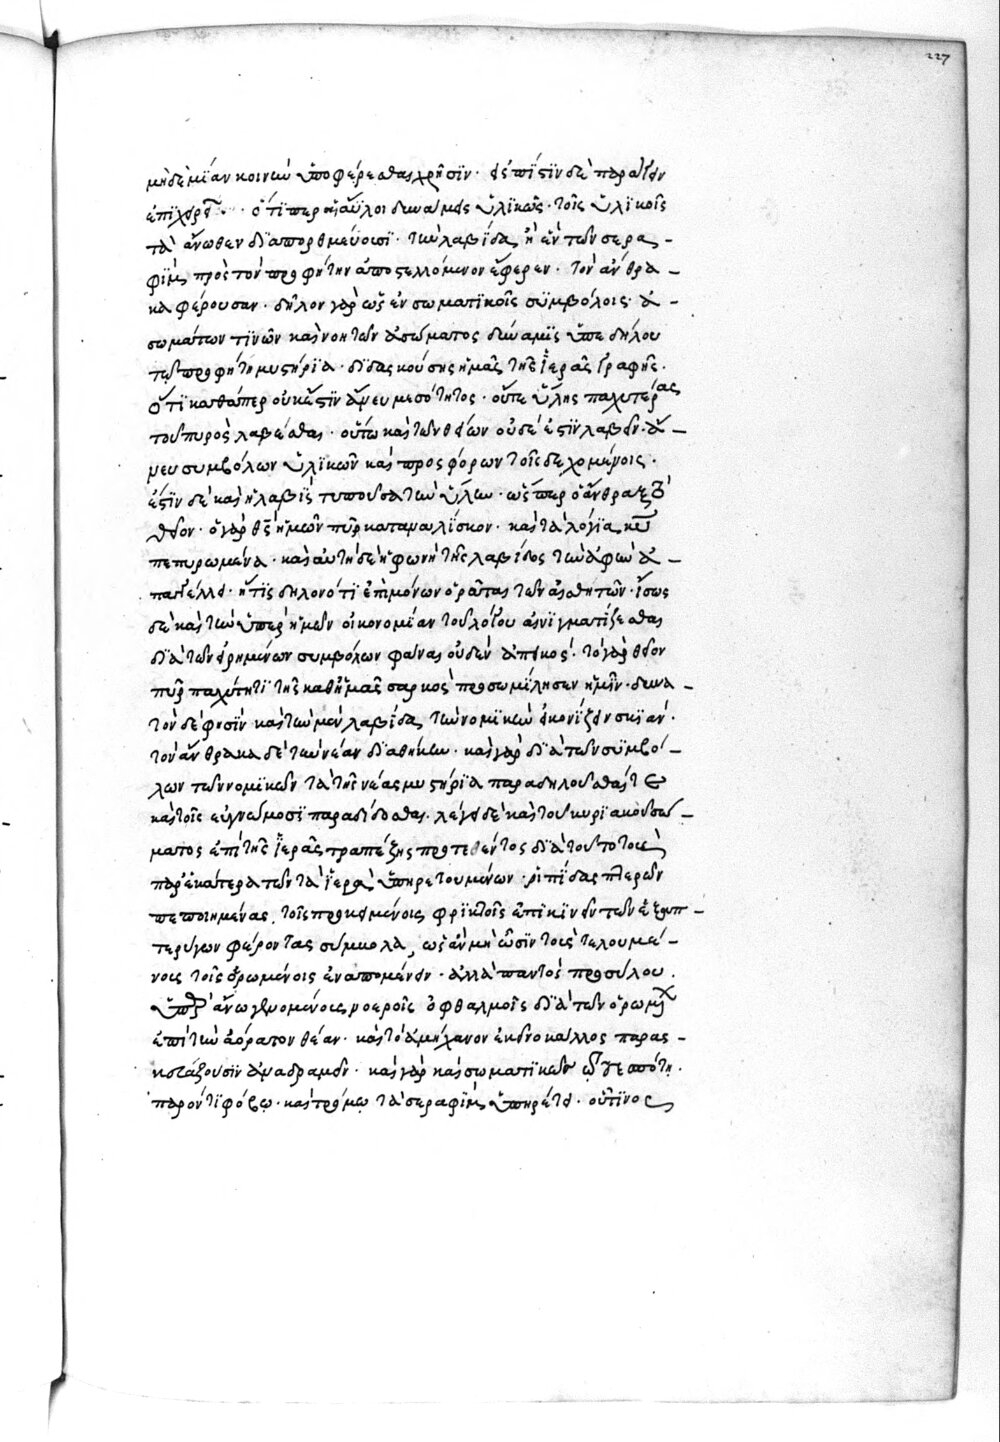 227
μὴδεμίαν κοινὴν ὑποφέρεσθαι χρῆσιν· ἐπίσιν δὲ παράγειν
ἐπιχειρεῖ· ὅτι περ αἱ ἄϋλοι δυνάμεις ὑλικῶς· τοῖς ὑλικοῖς
τὰ ἄνωθεν διαπορθμεύουσι· τὴν λαβίδα, ἣ ἓν τῶν σερα-
φὶμ, πρὸς τὸν προφήτην ἀποστελλόμενον ἔφερεν· τὸν ἄνθρα-
κα φέρουσαν· δῆλον γὰρ ὡς ἐν σωματικοῖς συμβόλοις ἀ-
σωμάτων τινῶν καὶ νοητῶν ἀσώματος δύναμις ὑπεδήλου
τῷ προφήτη μυστήρια· διδασκούσης ἡμᾶς τῆς ἱερᾶς γραφῆς·
ὅτι καθάπερ οὐκ ἔστιν ἄνευ μεσότητος· οὔτε ὕλης παχυτέρας
τοῦ πυρὸς λαβέσθαι· οὕτω καὶ τῶν θείων οὐδέ ἐστιν λαβεῖν· ἄ-
νευ συμβόλων ὑλικῶν καὶ προσφόρων τοῖς δεχομένοις·
ἔστιν δὲ καὶ ἡ λαβὶς τυποῦσα τὴν ὕλην· ὥσπερ ὁ ἄνθραξ τὸ
θεῖον· ὁ γὰρ θς ἡμῶν πῦρ καταναλίσκον· καὶ τὰ λόγια κυ
πεπυρωμένα· καὶ αὐτὴ δὲ ἡ φωνὴ τῆς λαβίδος τὴν ἁφὴν ἀ-
παγγέλλει· ἥτις δηλονότι ἐπὶ μόνων ὁρᾶται τῶν αἰσθητῶν· ἴσως
δὲ καὶ τὴν ὑπὲρ ἡμῶν οἰκονομίαν τοῦ λόγου αἰνιγματίζεσθαι
διὰ τῶν εἰρημένων συμβόλων φάναι οὐδὲν ἀπεικὸς· τὸ γὰρ θεῖον
πῦρ παχύτητι τῆς καθ' ἡμᾶς σαρκὸς προσωμίλησεν ἡμῖν· δυνα-
τὸν δέ φησιν καὶ τὴν μὲν λαβίδα, τὴν νομικὴν εἰκονίζειν σκιάν·
τὸν ἄνθρακα δὲ τὴν νέαν διαθήκην· καὶ γὰρ διὰ τῶν συμβό-
λων τῶν νομικῶν τὰ τῆς νέας μυστήρια παραδηλοῦσθαί τε
καὶ τοῖς εὐγνώμοσι παραδίδοσθαι. λέγει δὲ καὶ τοῦ κυριακοῦ σώ-
ματος ἐπὶ τῆς ἱερᾶς τραπέζης προτεθέντος διὰ τοῦτο τοὺς
παρ' ἑκάτερα τῶν τὰ ἱερὰ ὑπηρετουμένων· ῥιπίδας πτερῶν
πεποιημένας, τοῖς προκειμένοις φρικτοῖς ἐπικινεῖν τῶν ἑξαπ-
τερύγων φέροντας σύμβολα, ὡς ἂν μὴ ὦσιν τοὺς τελουμέ-
νους τοῖς ὁρωμένοις ἐναπομένειν· ἀλλὰ παντὸς προσύλου.
ὑπὲρ ἄνω γενομένους νοεροῖς ὀφθαλμοῖς διὰ τῶν ὁρωμένων
ἐπὶ τὴν ἀόρατον θέαν· καὶ τὸ ἀμήχανον ἐκεῖνο κάλλος παρασ-
κευάζουσιν ἀναδραμεῖν· καὶ γὰρ καὶ σωματικῶν τῷ δεσπότη·
παρόντι φόβῳ· καὶ τρόμῳ τὰ σεραφὶμ, ὑπηρέτει· οὕτινος